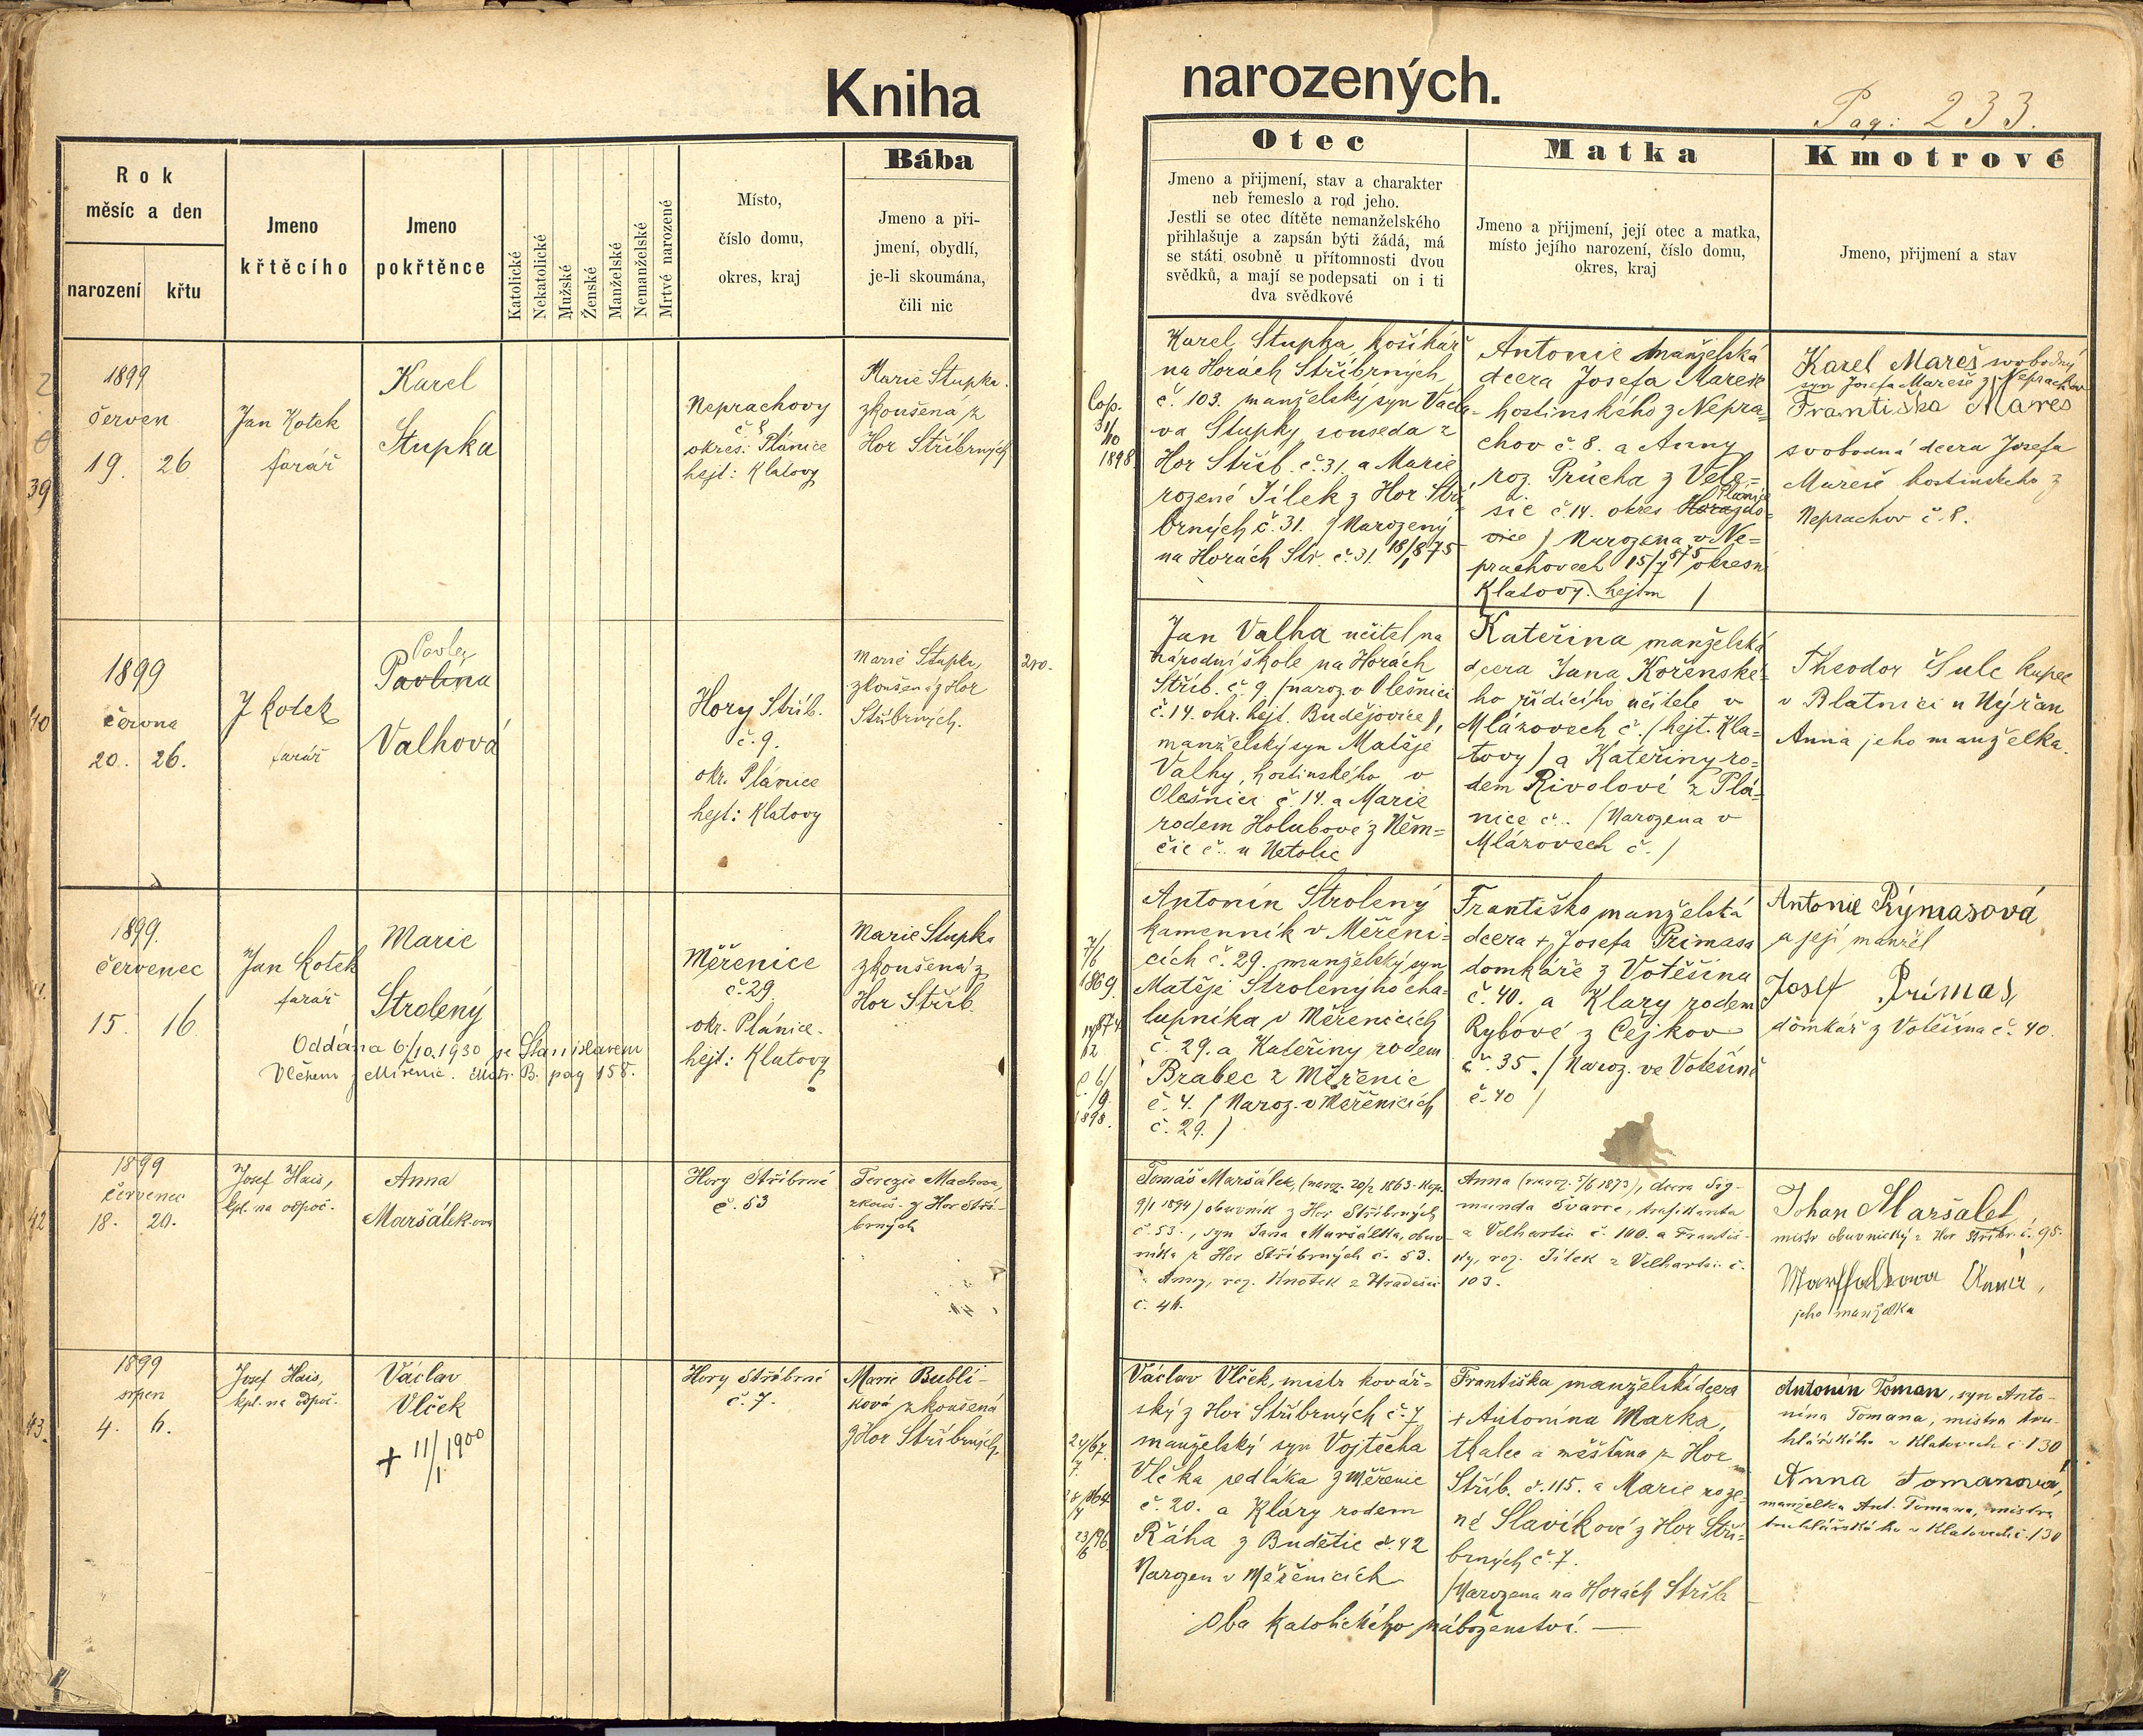 Kniha narozených.
Pag: 233.
Rok
měsíc a den
narození křtu
Jmeno
křtěcího
Jmeno
pokřtěnce
Katolické
Nekatolické
Mužské
Ženské
Manželské
Nemanželské
Mrtvé narozené
Místo,
číslo domu,
okres, kraj
Bába
Jmeno a při-
jmení, obydlí,
je-li skoumána,
čili nic
Otec
Jmeno a přijmení, stav a charakter
neb řemeslo a rod jeho.
Jestli se otec dítěte nemanželského
přihlašuje a zapsán býti žádá, má
se státi osobně u přítomnosti dvou
svědků, a mají se podepsati on i ti
dva svědkové
Matka
Jmeno a přijmení, její otec a matka,
místo jejího narození, číslo domu,
okres, kraj
Kmotrové
Jmeno, přijmení a stav
39
1899
červen
19. 26
Jan Kotek
farář
Karel
Stupka
Neprachovy
č 8
okres: Plánice
hejt: Klatovy
Marie Stupka
zkoušená z
Hor Stříbrných
Cop.
31/10
1898
Karel Stupka košíkář
na Horách Stříbrných
č. 103. manželský syn Václa-
va Stupky souseda z
Hor Stříb. č. 31. a Marie
rozené Jílek z Hor Stří
brných č. 31. / Narozený
na Horách Str. č. 31. 18/1 875
Antonie manželská
dcera Josefa Mareše
hostinského z Nepra-
chov č. 8. a Anny
roz. Průcha z Vele=
Plánice
šic č. 14. okres Horaždo-
vice / Narozena v Ne=
prachovech 15/7 875 okresní
Klatovy. hejtm /
Karel Mareš svobodný
syn Josefa Mareše z Neprachov
Františka Mareš
svobodná dcera Josefa
Mareše hostinského z
Neprachov č. 8.
40
1899
června
20. 26.
J Kotek
farář
Pavla
Pavlína
Valhová
Hory Stříb.
č. 9.
okr. Plánice
hejt: Klatovy
Marie Stupka,
zkoušená z Hor
Stříbrných.
Jan Valha učitel na
národní škole na Horách
Stříb. č. 9. / naroz. v Olešnici
č. 14. okr. hejt. Budějovice /,
manželský syn Matěje
Valhy, hostinského v
Olešnici č. 14. a Marie
rodem Holubové z Něm=
čic č.. u Netolic
Kateřina manželská
dcera Jana Kořenské-
ho řídícího učitele v
Mlázovech č. / hejt. Kla=
tovy / a Kateřiny ro=
dem Rivolové z Plá-
nice č.. / Narozena v
Mlázovech č. /
Theodor Šulc kupec
v Blatnici u Nýřan
Anna jeho manželka.
1899.
červenec
15. 16.
Jan Kotek
farář
Marie
Strolený
Oddána 6/10.1930 se Stanislavem
Vlčkem z Měřenic. Matr. B. pag 158.
Měřenice
č. 29
okr. Plánice.
hejt: Klatovy
Marie Stupka
zkoušená z
Hor Stříb.
7/6
1869.
1898.
Antonín Strolený
kamenník v Měřeni-
cích č. 29. manželský syn
Matěje Stroleného cha-
lupníka v Měřenicích
č. 29. a Kateřiny rodem
Brabec z Měřenic
č. 4. / Naroz. v Měřenicích
č. 29. /
Františka manželská
dcera + Josefa Primasa
domkáře z Votěšina
č. 40. a Klary rodem
Rybové z Cejkov
č. 35. / Naroz. ve Votěšině
č. 40 /
Antonie Rýmasová
a její manžel
Josef Primas
domkář z Votěšína č. 40.
42
1899
červenec
18. 20.
Josef Hais,
kpl. na odpoč.
Anna
Maršálekova
Hory Stříbrné
č. 53
Terezie Machova,
zkouš. z Hor Stří-
brných
Tomáš Maršálek, (naroz. 20/2 1863. kop.
9/1 1894) obuvník z Hor Stříbrných
č. 53., syn Jana Maršálka, obuv-
níka z Hor Stříbrných č. 53.
a Anny, roz. Knotek z Hradešic
č. 46.
Anna (naroz. 5/6 1873), dcera Sig-
munda Švarce, trafikanta
z Velhartic č. 100. a Františ-
ky, roz. Jílek z Velhartic č.
103.
Johan Maršalek
mistr obuvnický z Hor Stříbr. č. 95.
Marschalkova Anna,
jeho manželka
43.
1899
srpen
4. 6.
Josef Hais,
kpl. na odpoč.
Václav
Vlček
+ 11/1 1900
Hory Stříbrné
č. 7.
Marie Bubli-
ková zkoušená
z Hor Stříbrných.
24/67.
7.
23/96.
6
Václav Vlček, mistr kovář=
ský z Hor Stříbrných č. 7
manželský syn Vojtěcha
Vlčka sedláka z Měřenic
č. 20. a Kláry rodem
Řáha z Budětic č. 42
Narozen v Měřenicích
Františka manželská dcera
+ Antonína Marka,
tkalce a měšťana z Hor
Stříb. č. 115. a Marie roze-
né Slavíkové z Hor Stří-
brných č. 7.
/ Narozena na Horách Stříb
Oba katolického náboženství. —
Antonín Toman, syn Anto-
nína Tomana, mistra tru-
hlářského v Klatovech č 130
Anna Tomanová,
manželka Ant. Tomana, mistra
truhlářského v Klatovech č. 130